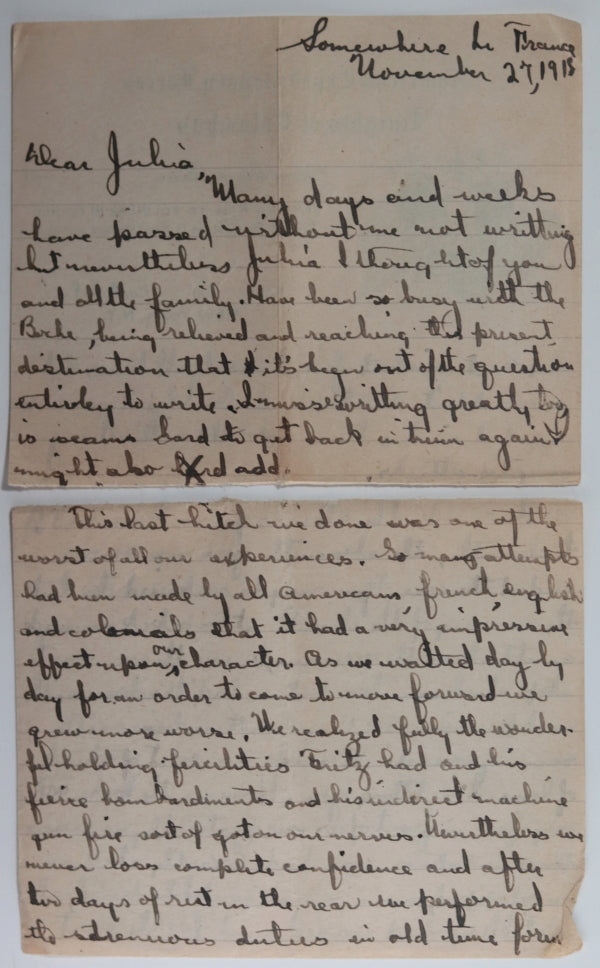 Somewhere In France
November 27, 1918
Dear Julia,
Many days and weeks
have passed without me not writting
but nevertheless Julia I thought of you
and all the family. Have been so busy with the
Boche, being relieved and reaching this present
destination that it's been out of the question
entirley to write. I miss writting greatly
is seams hard to get back in trim again I
might also add.
This last hitch we done was one of the
worst of all our experiences. So many attempts
had been made by all Americans, french, english
and colonials that it had a very impressive
effect upon our character. As we waited day by
day for an order to come to move forward we
grew more worse. We realized fully the wonder-
ful holding fercilities Fritz had and his
fierce bombardments and his indirect machine
gun fire sort of got on our nerves. Nevertheless we
never loss complete confidence and after
two days of rest in the rear we performed
the strenuous duties in old time form